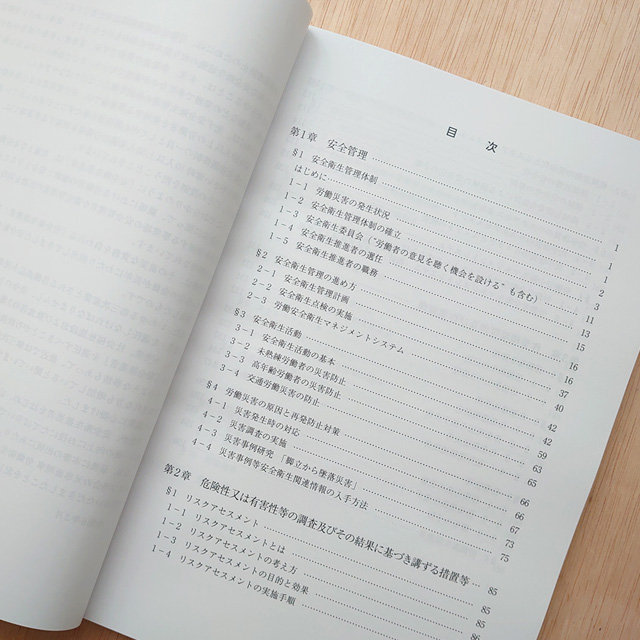 目 次
第1章 安全管理 …… 1
§1 安全衛生管理体制 …… 1
はじめに …… 1
1-1 労働災害の発生状況 …… 2
1-2 安全衛生管理体制の確立 …… 3
1-3 安全衛生委員会(“労働者の意見を聴く機会を設ける”も含む) …… 11
1-4 安全衛生推進者の選任 …… 13
1-5 安全衛生推進者の職務 …… 15
§2 安全衛生管理の進め方 …… 16
2-1 安全衛生管理計画 …… 16
2-2 安全衛生点検の実施 …… 37
2-3 労働安全衛生マネジメントシステム …… 40
§3 安全衛生活動 …… 42
3-1 安全衛生活動の基本 …… 42
3-2 未熟練労働者の災害防止 …… 59
3-3 高年齢労働者の災害防止 …… 63
3-4 交通労働災害の防止 …… 65
§4 労働災害の原因と再発防止対策 …… 66
4-1 災害発生時の対応 …… 66
4-2 災害調査の実施 …… 67
4-3 災害事例研究 「脚立から墜落災害」 …… 73
4-4 災害事例等安全衛生関連情報の入手方法 …… 75
第2章 危険性又は有害性等の調査及びその結果に基づき講ずる措置等 … 85
§1 リスクアセスメント …… 85
1-1 リスクアセスメントとは …… 85
1-2 リスクアセスメントの考え方 …… 86
1-3 リスクアセスメントの目的と効果
1-4 リスクアセスメントの実施手順